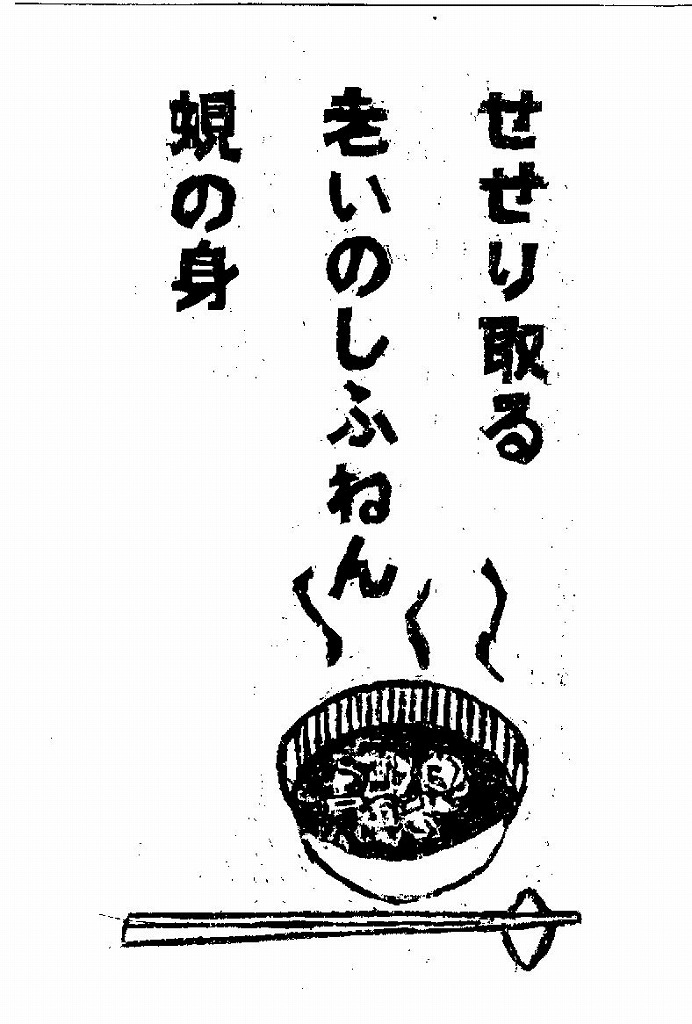 せせり取る
老いのしふねん
蜆の身